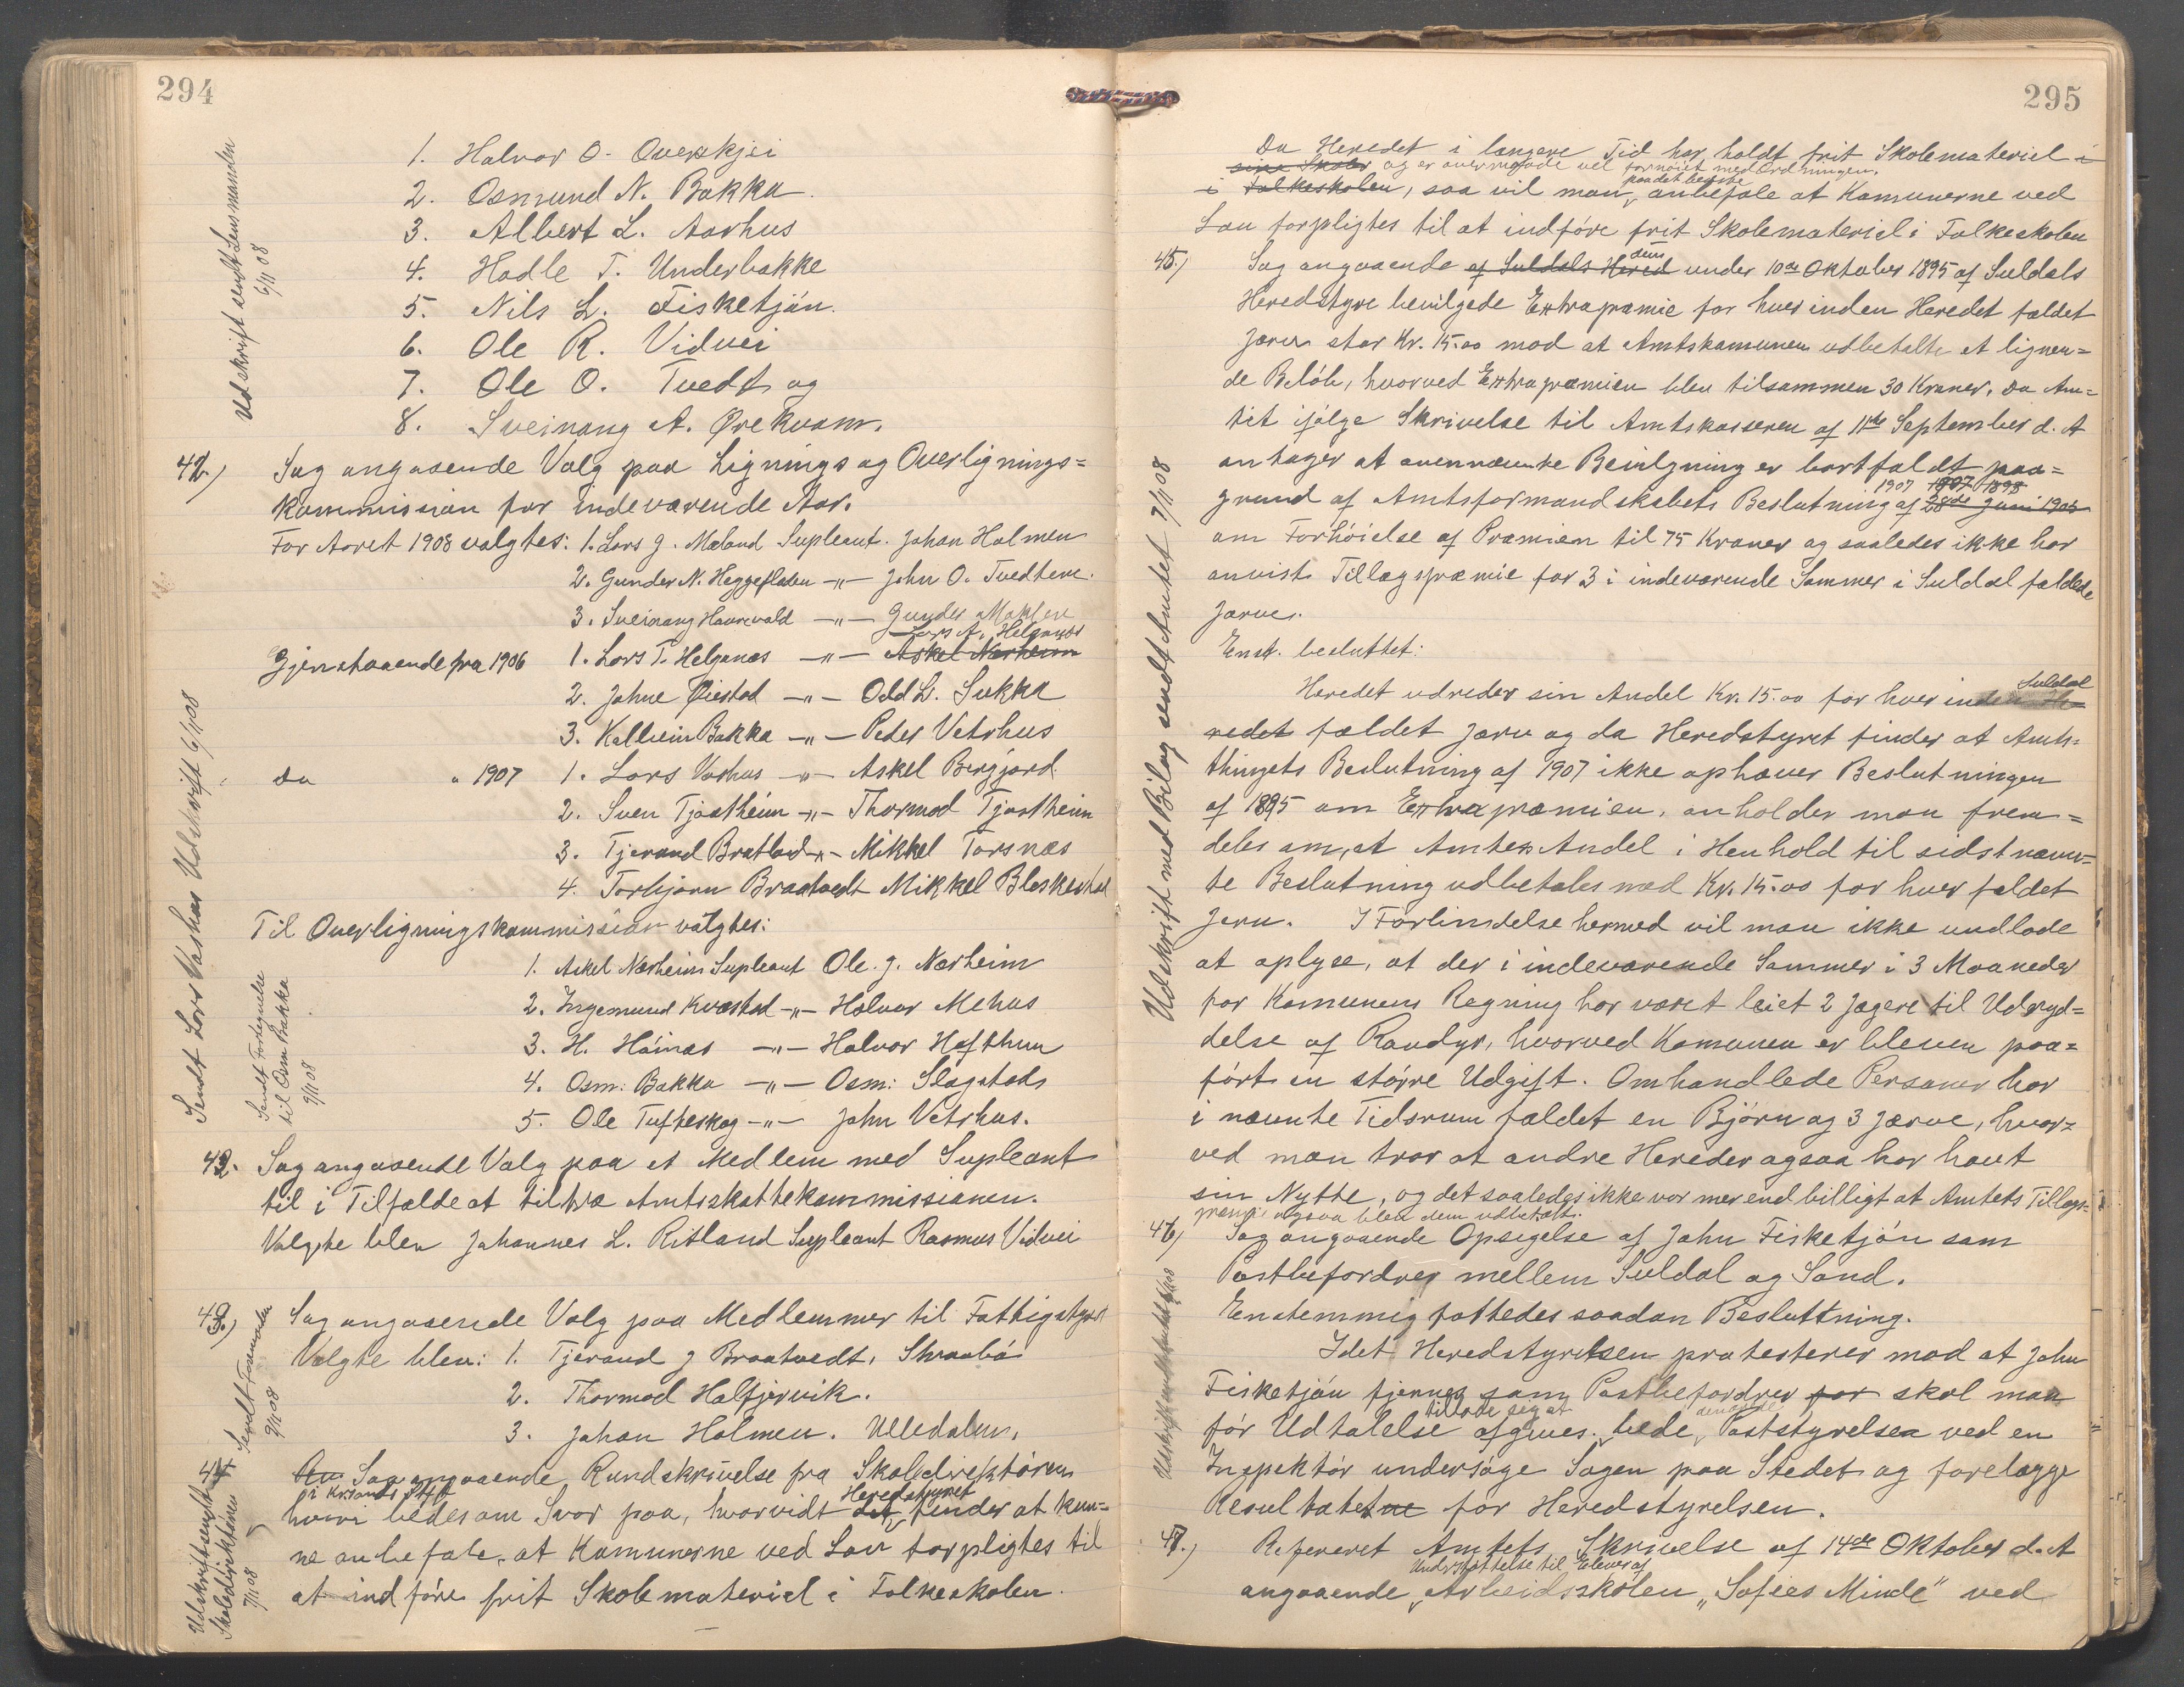 294
Udskrift sendt Lensmanden
6/11 08
1. Halvor O. Overskjei
2. Osmund N. Bakka.
3. Albert L. Aarhus
4. Hadle T. Underbakke
5. Nils L. Fisketjón.
6. Ole R. Vidvei
7. Ole O. Tvedt og
8. Sveinung A. Ørekvam.
42.) Sag angaaende Valg paa Lignings og Overlignings=
kommission for indeværende Aar.
For Aaret 1908 valgtes: 1. Lars J. Mæland Supleant. Johan Holmen
2. Gunder N. Heggefladen -"- John O. Tvedtene.
3. Sveinung Haurevald -"- Gunder Moklev
Lars A. Helganæs
Gjenstaaende fra 1906 1. Lars T. Helganæs -"- Askel Nærheim
2. Johne Øiestad -"- Odd L. Sukka
3. Kallein Bakka -"- Peder Vetrhus
Do " 1907 1. Lars Vashus -"- Askel Bergjord
2. Sven Tjøstheim -"- Thormod Tjøstheim
3. Tjerand Bratland -"- Mikkel Torsnæs
4. Torbjørn Braatvedt Mikkel Bleskestad
Sendt Lars Vashus Udskrift 6/11 08
Til Overligningskommission valgtes:
1. Askel Nærheim Supleant Ole. J. Nærheim
2. Ingemund Kvæstad -"- Halvor Mehus
3. H. Höinæs -"- Halvor Hofthun
4. Osm: Bakka -"- Osm: Slagstads
5. Ole Tufteskog -"- John Vetrhus.
Sendt Fortegnelse
til Osm Bakka
9/11 08
42. Sag angaaende Valg paa et Medlem med Supleant
til i Tilfælde at tiltræ Amtsskattekommissionen.
Valgte blev Johannes L. Ritland Supleant Rasmus Vidvei
43.) Sag angaaende Valg paa Medlemmer til Fattigstyret
Valgte blev: 1. Tjerand J Braatvedt, Straabö
2. Thormod Halfjervik.
3. Johan Holmen. Ulledalen.
Sendt Formanden
9/11 08
44 An Sag angaaende Rundskrivelse fra Skoledirektören
i Kr.sands Stift Heredstyret
hvori bedes om Svar paa, hvorvidt det finder at kun=
ne anbefale, at Kamunerne ved Lov forpligtes til
at indføre frit Skolemateriel i Folkeskolen.
Udskrift sendt
Skoledirektören
7/11 08
295
Da Heredet i længere Tid har holdt frit Skolemateriel i
sine Skoler og er overmaade vel fornöiet med Ordningen,
paa det bedste
i Folkeskolen, saa vil man anbefale at Kamunerne ved
Lov forpligtes til at indföre frit Skolemateriel i Folkeskolen
45.) Sag angaaende af Suldals Hered den under 10de Oktober 1895 af Suldals
Heredstyre bevilgede Extrapræmie for hver inden Heredet fældet
Jærv stor Kr. 15.00 mod at Amtskamunen udbetalte et lignen=
de Belöb, hvorved Extrapræmien blev tilsammen 30 Kroner. Da Am=
tet ifölge Skrivelse til Amtskasseren af 11te September d. A
antager at ovennævnte Bevilgning er bortfaldt paa=
1907 1897 1898
grund af Amtsformandskabets Beslutning af 28de Juni 1905
om Forhöielse af Præmien til 75 Kroner og saaledes ikke har
anvist Tillægspræmie for 3 i indeværende Sommer i Suldal fældede
Jærve.
Enst. besluttet:
Heredet udreder sin Andel Kr. 15.00 for hver inden Suldal He=
redet fældet Jærv og da Heredstyret finder at Amts=
thingets Beslutning af 1907 ikke ophæver Beslutningen
af 1895 om Extrapræmien, anholder man frem=
deles om, at Amtets Andel i Henhold til sidstnævn=
te Beslutning udbetales med Kr. 15.00 for hver fældet
Jerv. I Forbindelse hermed vil man ikke undlade
at oplyse, at der i indeværende Sommer i 3 Maaneder
for Kamunens Regning har været leiet 2 Jægere til Udryd=
delse af Rovdyr, hvorved Kamunen er bleven paa=
fört en större Udgift. Omhandlede Personer har
i nævnte Tidsrum fældet en Björn og 3 Jærve, hvor=
ved man tror at andre Hereder ogsaa har havt
sin Nytte, og det saaledes ikke var mer end billigt at Amtets Tillægs=
præmie ogsaa blev dem udbetalt.
Udskrift med Bilag sendt Amtet 7/11 08
46) Sag angaaende Opsigelse af John Fisketjón som
Postbefordrer mellem Suldal og Sand.
Enstemmig fattedes saadan Beslutning.
Idet Heredstyrelsen protesterer mod at John
Fisketjón fjernes som Postbefordrer for skal man
tillade sig at
för Udtalelse afgives bede Poststyrelsen ved en
Inspektör undersöge Sagen paa Stedet og forelægge
Resultatet for Heredstyrelsen.
47.) Refereret Amtets Skrivelse af 14de Oktober d. A
Understöttelse til Elever af
angaaende Arbeidsskolen "Sofies Minde" ved